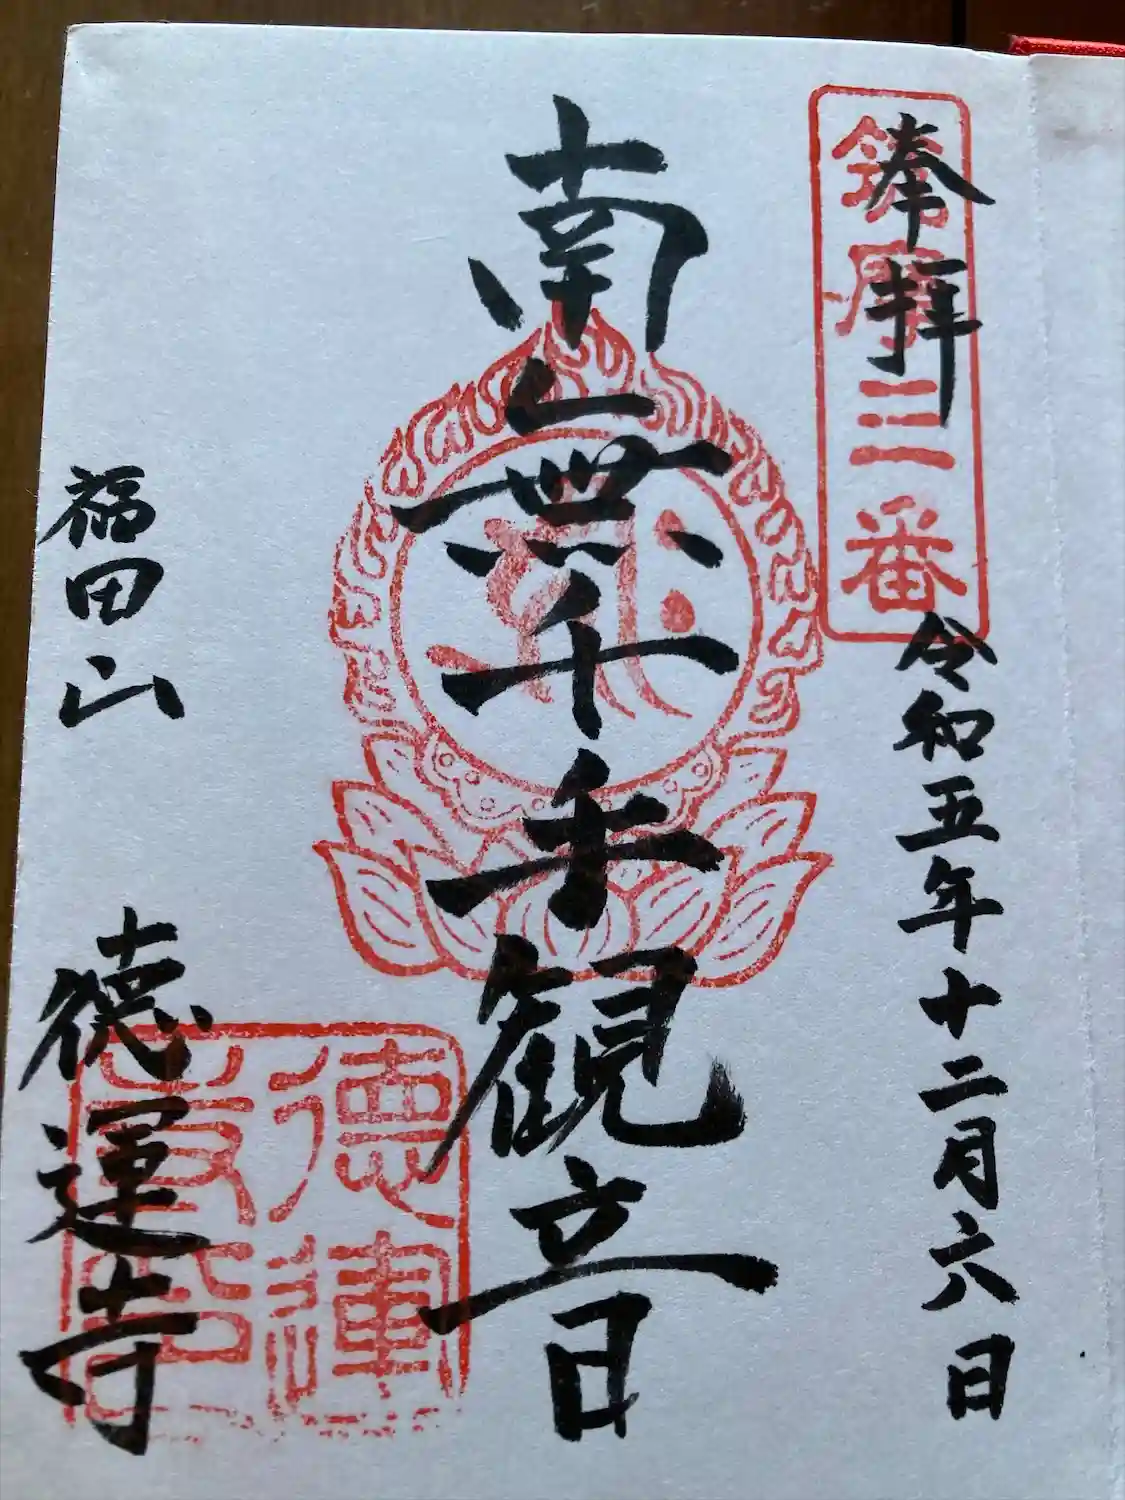 奉拝
三番
令和五年十二月六日
南無千手観音
福田山
徳運寺